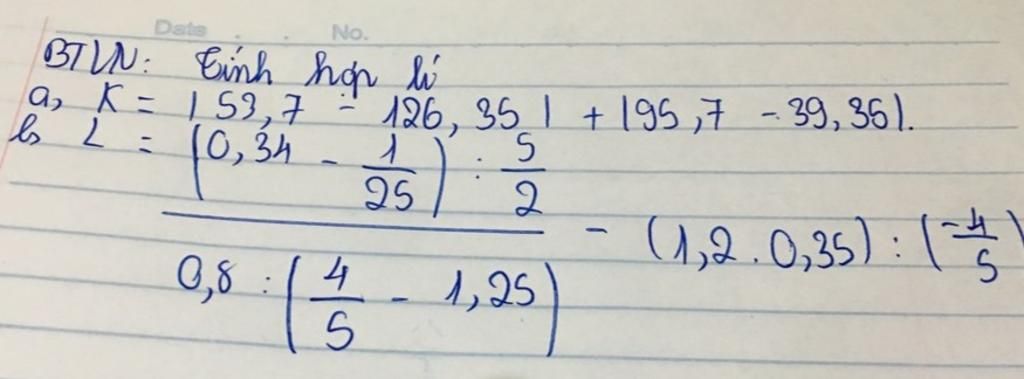 Date . . No.
BTVN: Tính hợp lí
a, K = |53,7 - 126,35| + |95,7 - 39,35|.
b, L = (0,34 - 1/25) : 5/2 / 0,8 : (4/5 - 1,25) - (1,2 . 0,35) : (-4/5)